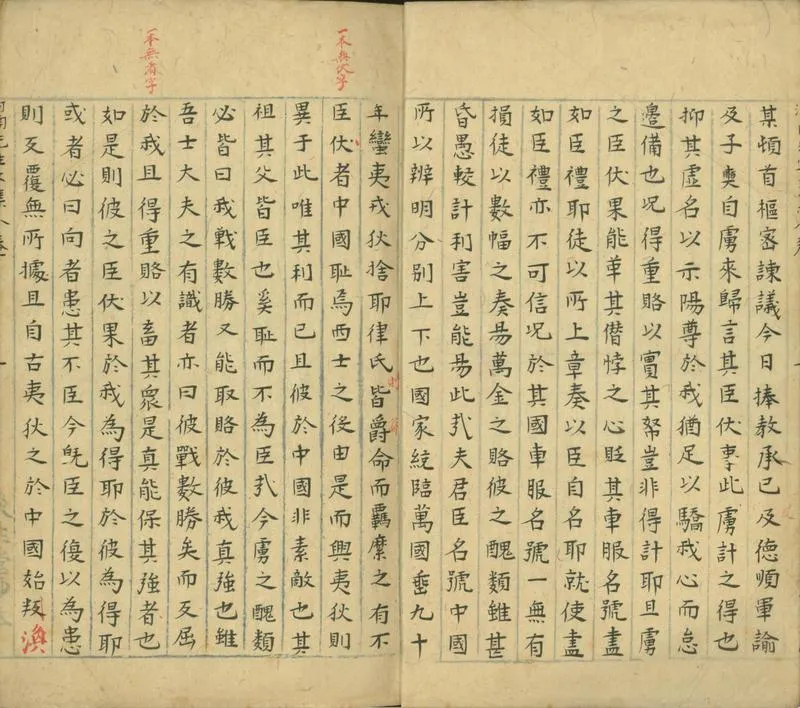 某頓首樞密諫議今日捧教承已及德順軍諭
及子奭自虜來歸言其臣伏此虜計之得也
抑其虛名以示陽尊於我猶足以驕我心而怠
邉備也况得重賂以實其帑豈非得計耶且虜
之臣伏果能革其僭悖之心貶其車服名號盡
如臣禮耶徒以所上章奏以臣自名耶就使盡
如臣禮亦不可信况於其國車服名號一無有
損徒以數幅之奏易萬金之賂彼之醜類雖甚
昏愚較計利害豈能易此㢤夫君臣名號中國
所以辨明分别上下也國家統臨萬國垂九十
年蠻夷戎狄捨耶律氏皆爵命而覊縻之有不
一本無字
臣伏者中國耻焉西士之後由是而興夷狄則
異于此唯其利而已且彼於中國非素敵也其
祖其父皆臣也奚耻而不為臣㢤今虜之醜類
必皆曰我戰數勝又能取賂於彼我真強也雖
吾士大夫之有識者亦曰彼戰數勝矣而反屈
一本無者字
於我且得重賂以畜其衆是真能保其強者也
如是則彼之臣伏果於我為得耶於彼為得耶
或者必曰向者患其不臣今旣臣之復以為患
則反覆無所據且自古夷狄之於中國始叛